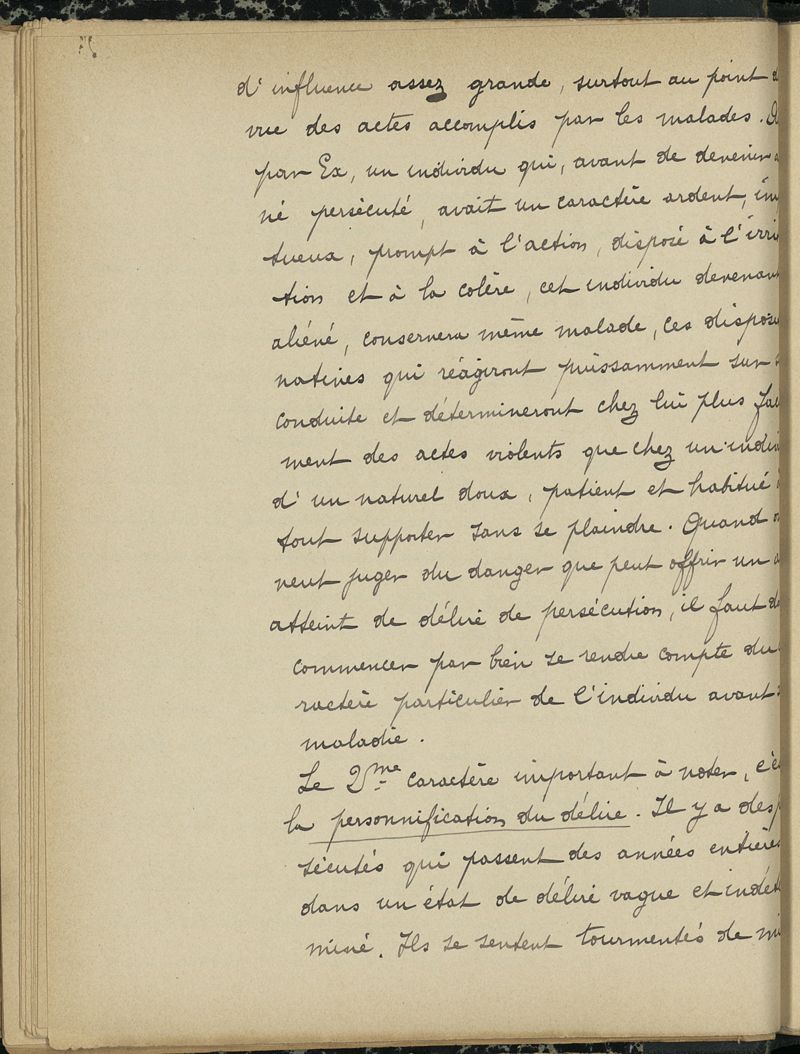 d'influence assez grande, surtout au point d
vue des actes accomplis par les malades.
par Ex, un individu qui, avant de devenir a
né persécuté, avait un caractère ardent, imp
tueux, prompt à l'action, disposé à l'irri
tion et à la colère, cet individu devenant
aliéné, conservera même malade, ces disposi
natives qui réagiront puissamment sur s
conduite et détermineront chez lui plus faci
ment des actes violents que chez un indivi
d'un naturel doux, patient et habitué à
tout supporter sans se plaindre. Quand o
veut juger du danger que peut offrir un a
atteint de délire de persécution, il faut do
commencer par bien se rendre compte du
ractère particulier de l'individu avant s
maladie.
Le 2me caractère important à noter, c'es
la personnification du délire. Il y a des p
sécutés qui passent des années entières
dans un état de délire vague et indét
miné. Ils se sentent tourmentés de mi